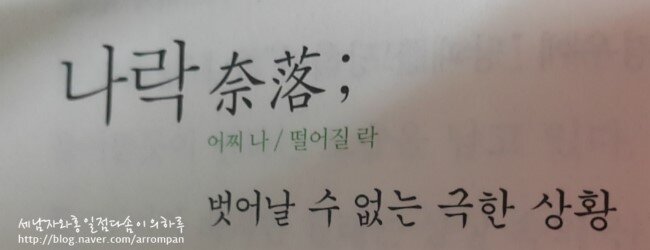 나락 奈落;
어찌 나 / 떨어질 락
벗어날 수 없는 극한 상황
세남자와홍일점다솜이의하루
http://blog.naver.com/arrompan